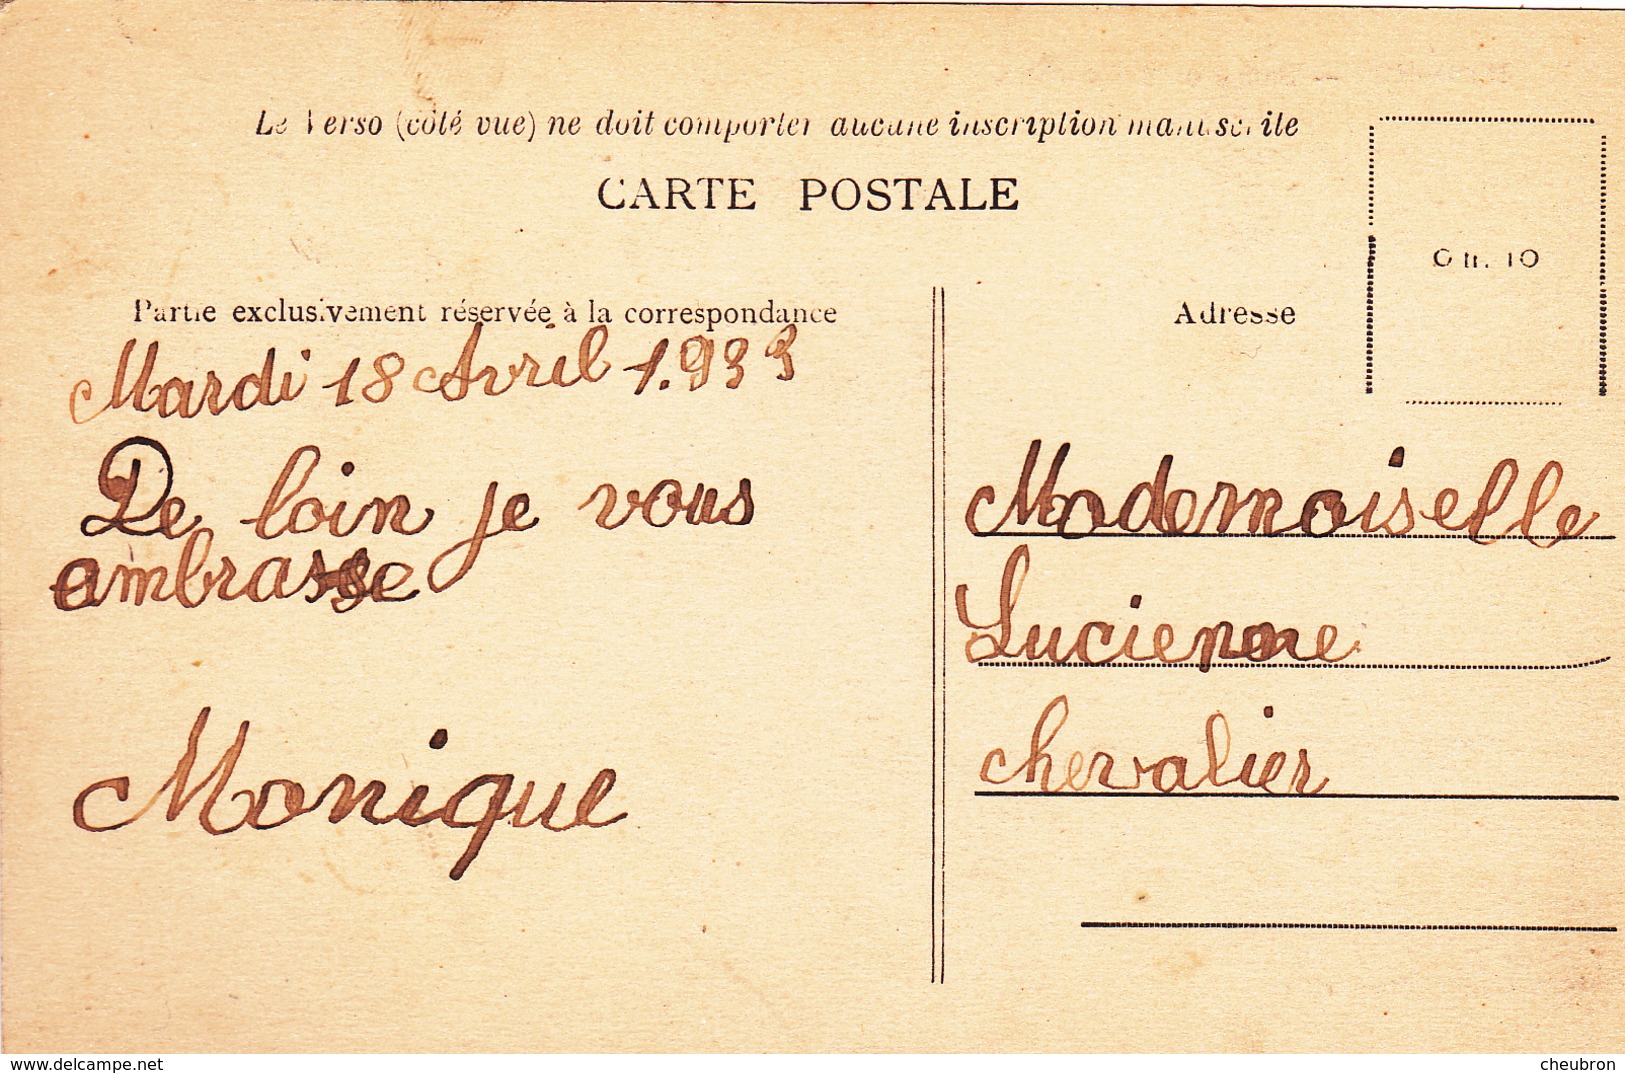 Le Verso (côté vue) ne doit comporter aucune inscription manuscrite
CARTE POSTALE
0 fr. 10
Partie exclusivement réservée à la correspondance
Adresse
Mardi 18 Avril 1.933
De loin je vous
ambrasse
Monique
Modemoiselle
Lucienne
chevalier
www.delcampe.net
cheubron